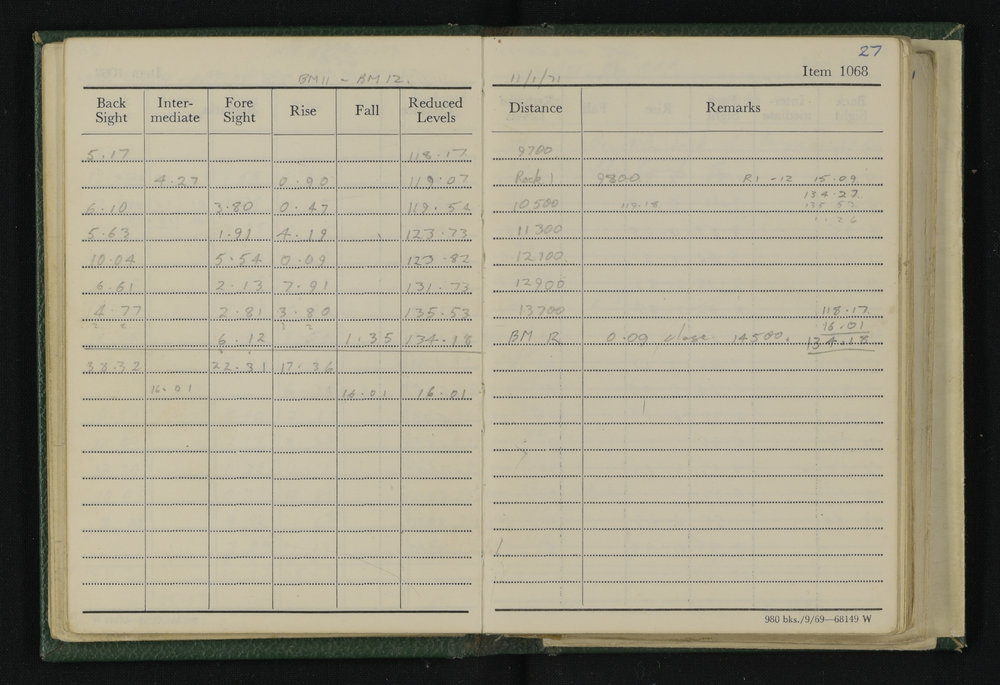 27
Item 1068
BM 11 - BM 12.
11/1/71
Back Sight Inter-mediate Fore Sight Rise Fall Reduced Levels Distance Remarks
5.17 118.17 9700
4.27 0.90 119.07 Rock 1 9800 R1 -12 15.09
134.27
6.10 3.80 0.47 119.54 10500 119.18 135.53
1.26
5.63 1.91 4.19 123.73 11300
10.04 5.54 0.09 123.82 12100
6.61 2.13 7.91 131.73 12900
4.77 2.81 3.80 135.53 13700 118.17
16.01
6.12 1.35 134.18 BM R 0.09 14500. 134.18
38.32 22.31 17.36
16.01 16.01 16.01
980 bks./9/69—68149 W